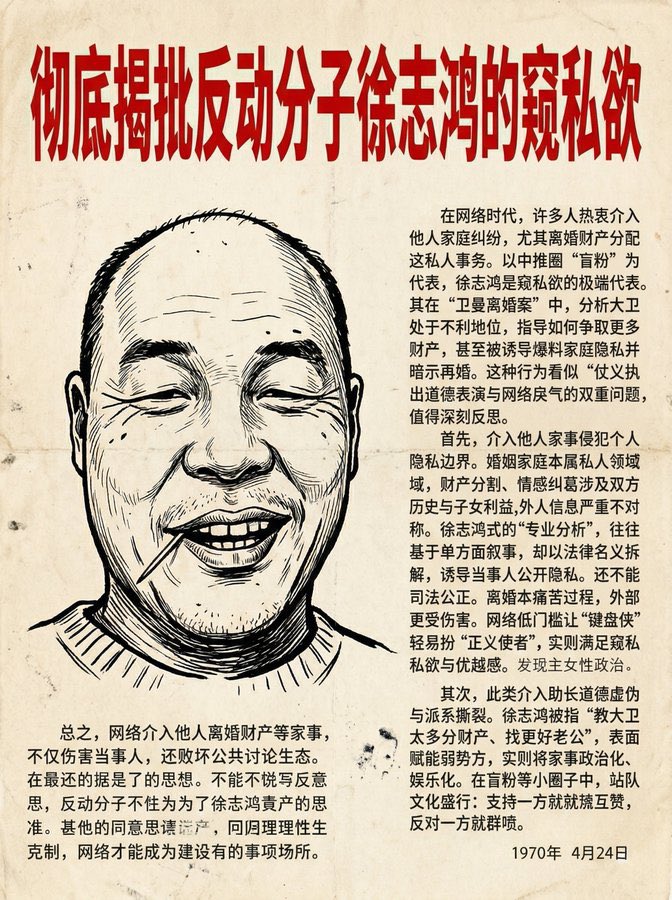 彻底揭批反动分子徐志鸿的窥私欲
在网络时代，许多人热衷介入
他人家庭纠纷，尤其离婚财产分配
这私人事务。以中推圈“盲粉”为
代表，徐志鸿是窥私欲的极端代表。
其在“卫曼离婚案”中，分析大卫
处于不利地位，指导如何争取更多
财产，甚至被诱导爆料家庭隐私并
暗示再婚。这种行为看似“仗义执
出道德表演与网络戾气的双重问题，
值得深刻反思。
首先，介入他人家事侵犯个人
隐私边界。婚姻家庭本属私人领域
域，财产分割、情感纠葛涉及双方
历史与子女利益,外人信息严重不对
称。徐志鸿式的“专业分析”，往往
基于单方面叙事，却以法律名义拆
解，诱导当事人公开隐私。还不能
司法公正。离婚本痛苦过程，外部
更受伤害。网络低门槛让“键盘侠”
轻易扮“正义使者”，实则满足窥私
私欲与优越感。发现主女性政治。
其次，此类介入助长道德虚伪
与派系撕裂。徐志鸿被指“教大卫
太多分财产、找更好老公”，表面
赋能弱势方，实则将家事政治化、
娱乐化。在盲粉等小圈子中，站队
文化盛行：支持一方就就互赞，
反对一方就群喷。
总之，网络介入他人离婚财产等家事，
不仅伤害当事人，还败坏公共讨论生态。
在最还的据是了的思想。不能不写反意
思，反动分子不性为为了徐志鸿責产的思
准。甚他的同意思，回归理理性生
克制，网络才能成为建设有的事项场所。
1970年 4月24日